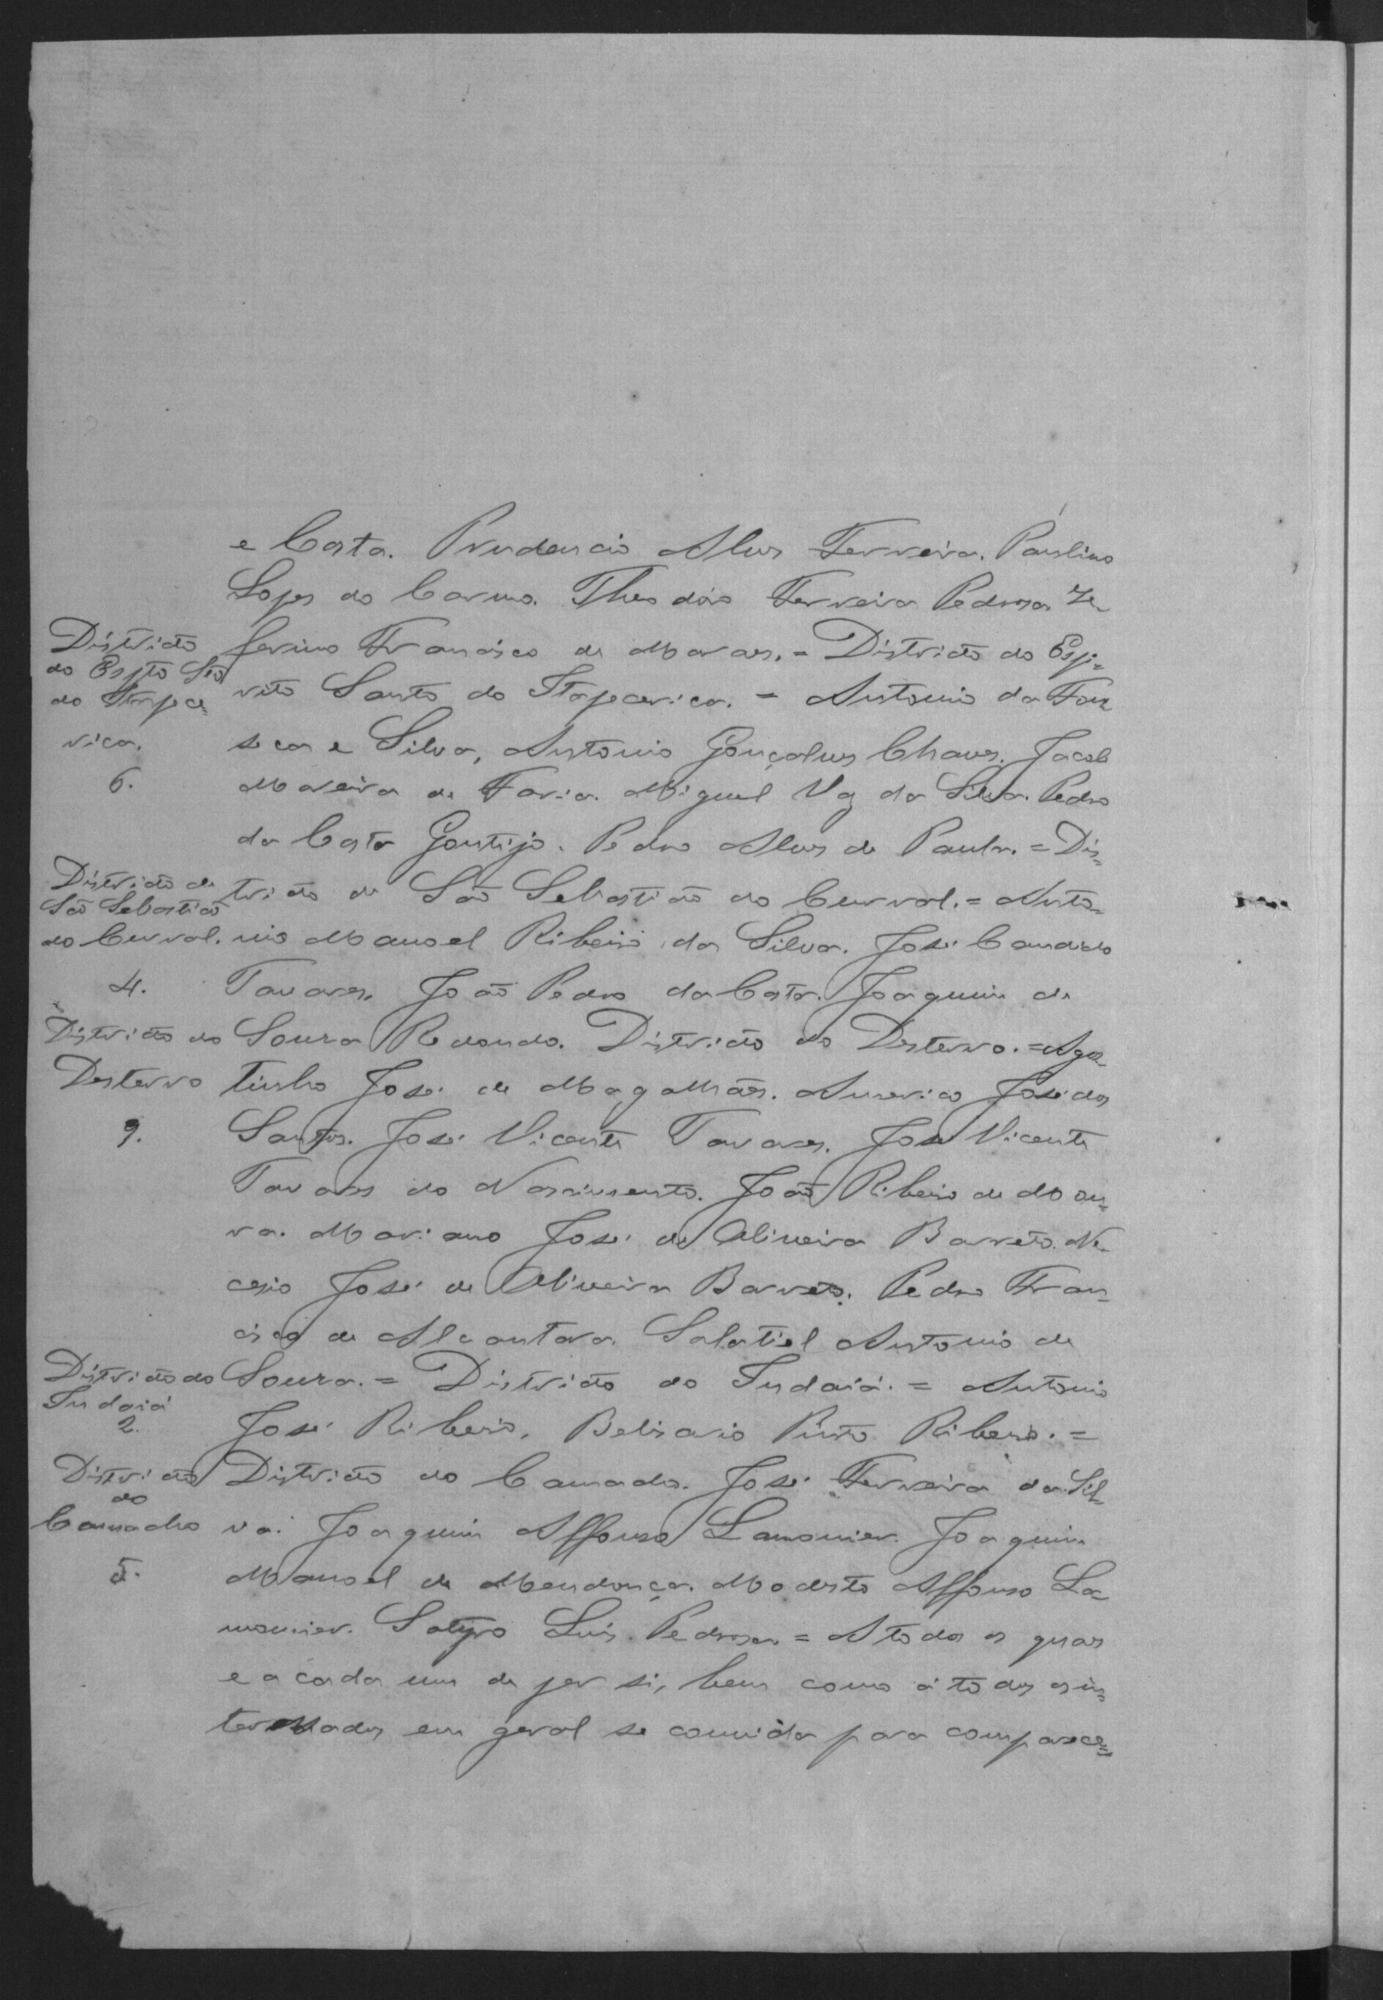 e Costa. Prudencio Alves Ferreira. Paulino
Lopes do Carmo. Theodoro Ferreira Pedrosa. Ze-
Districto
ferino Francisco de Moraes. = Districto do Espi=
do Espto Sto
rito Santo do Itapecerica. = Antonio da Fon
do Itapece
rica.
seca e Silva, Antonio Gonçalves Chaves. Jacob
6.
Moreira de Faria. Miguel Vaz da Silva. Pedro
da Costa Gontijo. Pedro Alves de Paula. = Dis=
Districto de
tricto de São Sebastião do Curral. = Anto=
São Sebastião
do Curral.
nio Manoel Ribeiro da Silva. José Candido
4.
Tavares. João Pedro da Costa. Joaquim de
Districto do
Souza Redondo. Districto do Desterro. = Agos
Desterro
tinho José de Magalhães. Americo José dos
9.
Santos. José Vicente Tavares. José Vicente
Tavares do Nascimento. João Ribeiro de Mou=
ra. Mariano José de Oliveira Barreto. Ni-
cesio José de Oliveira Barreto. Pedro Fran=
cisco de Alcantara. Salatiel Antonio de
Districto do
Souza. = Districto do Indaiá. = Antonio
Indaiá
2.
José Ribeiro. Belisario Pinto Ribeiro. =
Districto
Districto do Camacho. José Ferreira da Sil-
do
Camacho
va. Joaquim Affonso Lamonier. Joaquim
5.
Manoel de Mendonça. Modesto Affonso La
monier. Satyro Luis Pedrosa. = A todos os quaes
e a cada um de per si, bem como á todos os in=
teressados em geral se convida para comparece=